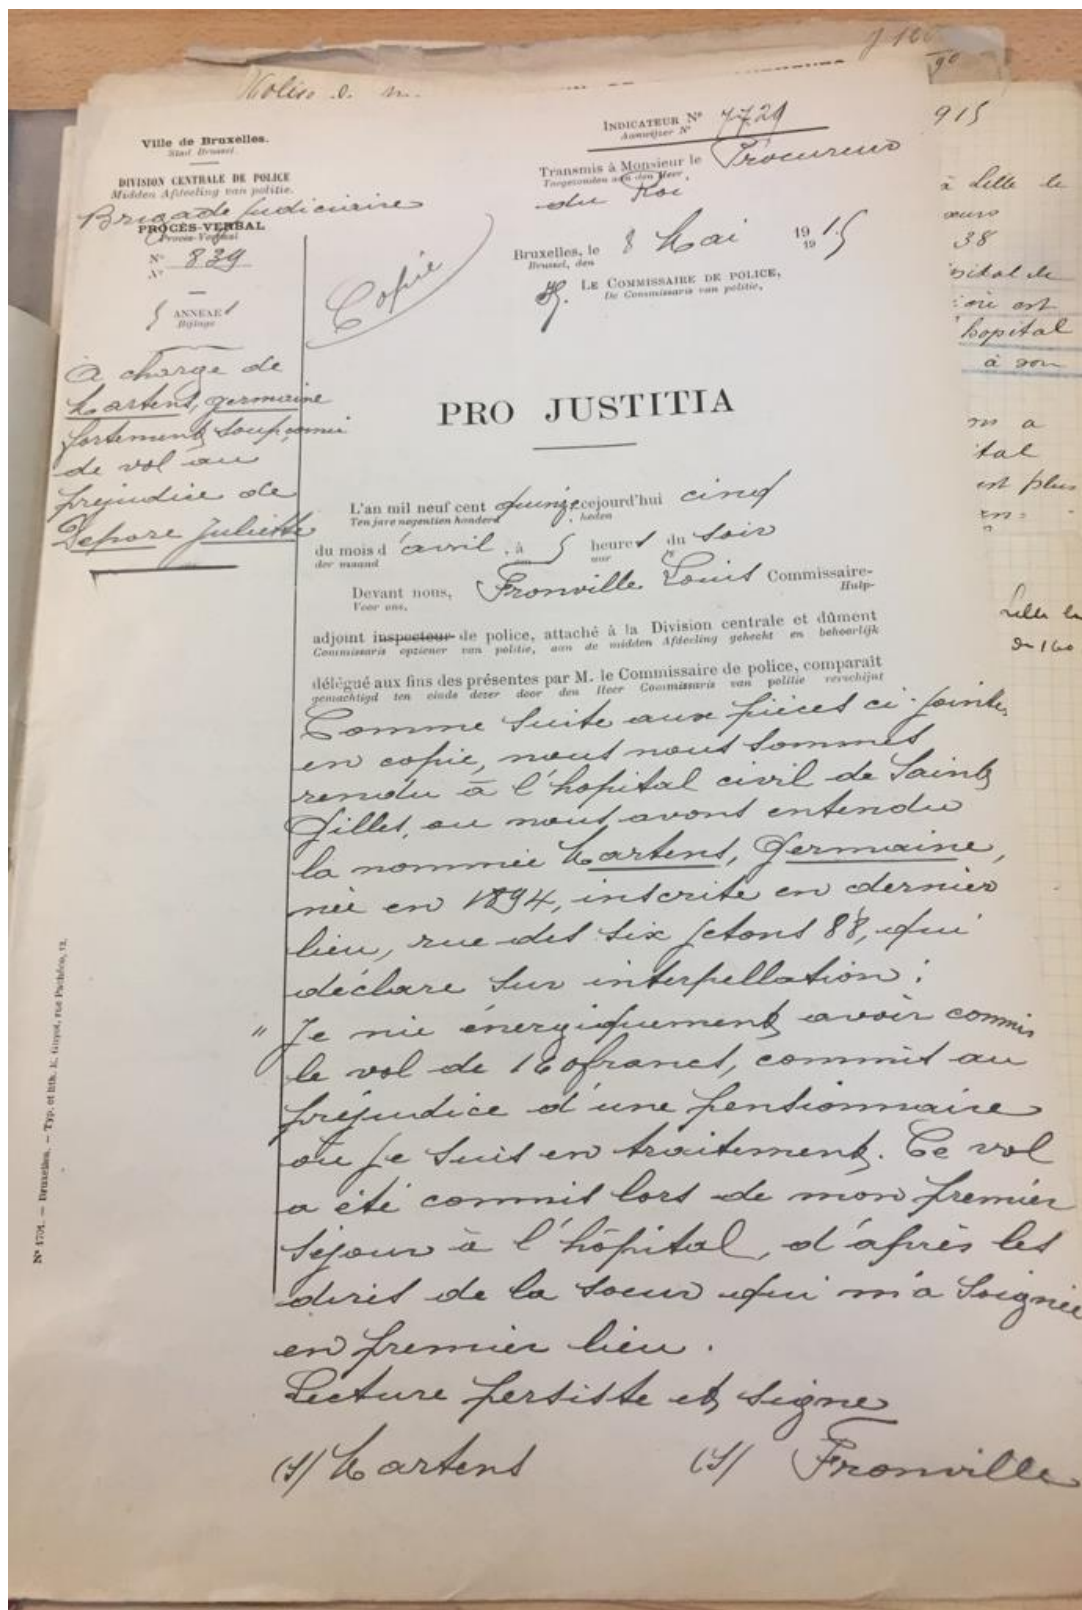 Ville de Bruxelles.
Stad Brussel.
DIVISION CENTRALE DE POLICE
Midden Afdeeling van politie.
Brigade Judiciaire
PROCÈS-VERBAL
Proces-Verbaal
N° 839
N°
5 ANNEXES
Bijlage
à charge de
Martens, germaine
fortement soupçonnée
de vol au
préjudice de
Depore Juliette
Copie
INDICATEUR N° 7729
Aanwijzer N°
Transmis à Monsieur le Procureur
Toegezonden aan den Heer
du Roi
Bruxelles, le 8 Mai 1915
Brussel, den 19
LE COMMISSAIRE DE POLICE,
De Commissaris van politie,
PRO JUSTITIA
L'an mil neuf cent quinze cejourd'hui cinq
Ten jare negentien honderd heden
du mois d'avril, à 5 heures du soir
der maand uur
Devant nous, Fronville Louis Commissaire-
Voor ons, Hulp-
adjoint inspecteur de police, attaché à la Division centrale et dûment
Commissaris opziener van politie, aan de midden Afdeeling gehecht en behoorlijk
délégué aux fins des présentes par M. le Commissaire de police, comparaît
gemachtigd ten einde dezer door den Heer Commissaris van politie verschijnt
Comme suite aux pièces ci-jointes,
en copie, nous nous sommes
rendu à l'hopital civil de Saint
Gilles, ou nous avons entendu
la nommée Martens, Germaine,
née en 1894, inscrite en dernier
lieu, rue des six jetons 88, qui
déclare sur interpellation :
" Je nie énergiquement avoir commis
le vol de 160 francs, commis au
préjudice d'une pensionnaire
où je suis en traitement. Ce vol
a été commis lors de mon premier
séjour à l'hôpital, d'après les
dires de la soeur qui m'a soignée
en premier lieu.
Lecture persiste et signe
(s) Martens (s) Fronville
N° 4704. — Bruxelles. — Typ. et lith. E. Guyot, rue Pachéco, 12.
915
à Lille le
38
hopital
à son
tal
est plus